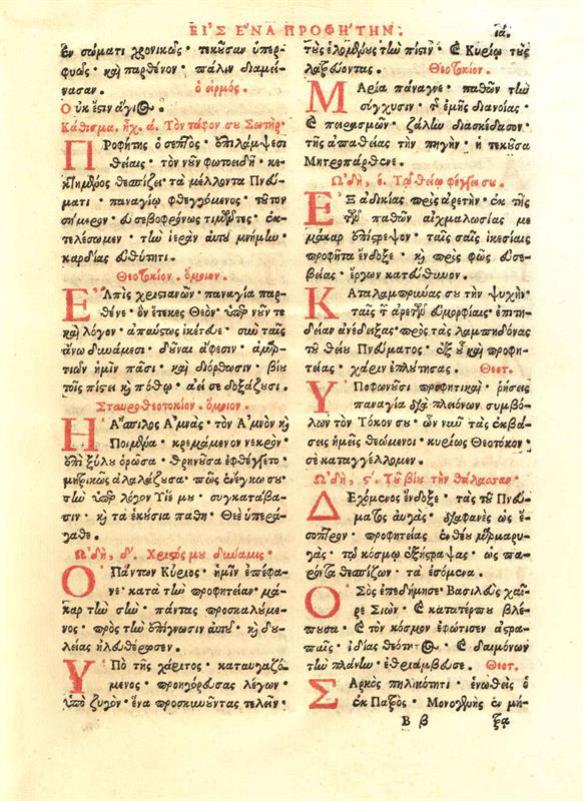 ΕΙΣ ΕΝΑ ΠΡΟΦΗΤΗΝ.
ια.
ἐν σώματι χρονικῶς· τεκοῦσαν ὑπερ-
φυῶς· καὶ παρθένον· πάλιν διαμεί-
νασαν. ὁ εἱρμός.
Οὐκ ἔστιν ἅγιος.
Κάθισμα, ἦχ. ά. Τὸν τάφον σου Σωτήρ.
Προφήτης ὁ σεπτὸς· ἐπιλάμψεσι
θείαις· τὸν νοῦν φωτισθεὶς·
θεσπίζει· τὰ μέλλοντα Πνεύ-
ματι· παναγίῳ φθεγγόμενος· τοῦτον
σήμερον· εὐσεβοφρόνως τιμῶντες· ἐκ-
τελέσωμεν· τὴν ἱερὰν αὐτοῦ μνήμην·
καρδίας εὐθύτητι.
Θεοτοκίον. ὅμοιον.
Ἐλπὶς χριστιανῶν· παναγία παρ-
θένε· ὃν ἔτεκες Θεὸν· ὑπὲρ νοῦν τε
καὶ λόγον· ἀπαύστως ἱκέτευε· σὺν ταῖς
ἄνω δυνάμεσι· δοῦναι ἄφεσιν· ἁμαρ-
τιῶν ἡμῖν πᾶσι· καὶ διόρθωσιν· βίου
τοῖς πίστει καὶ πόθῳ· ἀεί σε δοξάζουσι.
Σταυροθεοτοκίον. ὅμοιον.
Ἡ ἄσπιλος Ἀμνὰς· τὸν Ἀμνὸν καὶ
Ποιμένα· κρεμάμενον νεκρὸν·
ἐπὶ ξύλου ὁρῶσα· θρηνοῦσα ἐφθέγγετο·
μητρικῶς ἀλαλάζουσα· πῶς ἐνέγκω σου·
τὴν ὑπὲρ λόγον Υἱέ μου· συγκατάβα-
σιν· καὶ τὰ ἑκούσια πάθη· Θεὲ ὑπερά-
γαθε.
ᾨδὴ, δ΄. Χριστός μου δύναμις.
Ὁ Πάντων Κύριος· ἡμῖν ἐπέφα-
νε· κατὰ τὴν προφητείαν· μά-
καρ τὴν σὴν· πάντας προσκαλούμε-
νος· πρὸς τὴν ἐπίγνωσιν αὐτοῦ· καὶ δου-
λείας ἠλευθέρωσεν.
Ὑπὸ τῆς χάριτος· καταυγαζό-
μενος· προηγόρευσας λέγων·
ὑπὸ ζυγὸν· ἕνα προσκυνοῦντας τελεῖν·
τοὺς ἐλομένους τὴν πίστιν· Κυρίῳ τοὺς
λατρεύοντας. Θεοτοκίον.
Μαρία πάναγνε· παθῶν τὴν
σύγχυσιν· τῆς ἐμῆς διανοίας·
καὶ πειρασμῶν· ζάλην διασκέδασον·
τῆς ἀπαθείας τὴν πηγὴν· ἡ τεκοῦσα
Μητροπάρθενε.
ᾨδὴ, ε. Τῷ θείῳ φέγγει σου.
Ἐξ ἀδικίας πρὸς ἀρετὴν· ἐκ τῆς
τῶν παθῶν αἰχμαλωσίας με
μάκαρ ἐπίστρεψον· ταῖς σαῖς ἱκεσίαις
προφῆτα ἔνδοξε· καὶ πρὸς φῶς εὐσε-
βείας· ἔργων κατεύθυνον.
Καταλαμπρύνας σου τὴν ψυχὴν·
ταῖς τῶν ἀρετῶν εὐμορφίαις· ἐπιτη-
δείαν ἀνέδειξας· πρὸς τὰς λαμπηδόνας
τοῦ θείου Πνεύματος· ἐξ οὗ καὶ προφη-
τείας· χάριν ἐπλούτησας. Θεοτ.
Ὑποφωνοῦσι προφητικαὶ· ῥήσεις
παναγία διὰ πλειόνων συμβό-
λων τὸν Τόκον σου· ὧν νῦν τὰς ἐκβά-
σεις ἡμεῖς θεώμενοι· κυρίως Θεοτόκον·
σὲ καταγγέλλομεν.
ᾨδὴ, ς΄. Τοῦ βίου τὴν θάλασσαν.
Δεχόμενος ἔνδοξε· τὰς τοῦ Πνεύ-
ματος αὐγὰς· διαφανὲς ὡς ἔ-
σοπτρον· προφητείας ἐνθέου μαρμαρυ-
γὰς· τῷ κόσμῳ ἐξήστραψας· ὡς πα-
ρόντα θεσπίζων· τὰ ἐσόμενα.
Ὁ Σὸς ἐπεδήμησε· Βασιλεὺς χαῖ-
ρε Σιών· καὶ κατατέρπου βλέ-
πουσα· καὶ τὸν κόσμον ἐφώτισεν ἀστρα-
παῖς· ἰδίας θεότητος· καὶ δαιμόνων
τὴν πλάνην· ἐθριάμβευσε. Θεοτ.
Σαρκὸς πηλικότητι· ἑνωθεὶς ὁ
ἐκ Πατρὸς· Μονογενὴς ἐν μή-
Β β τρα